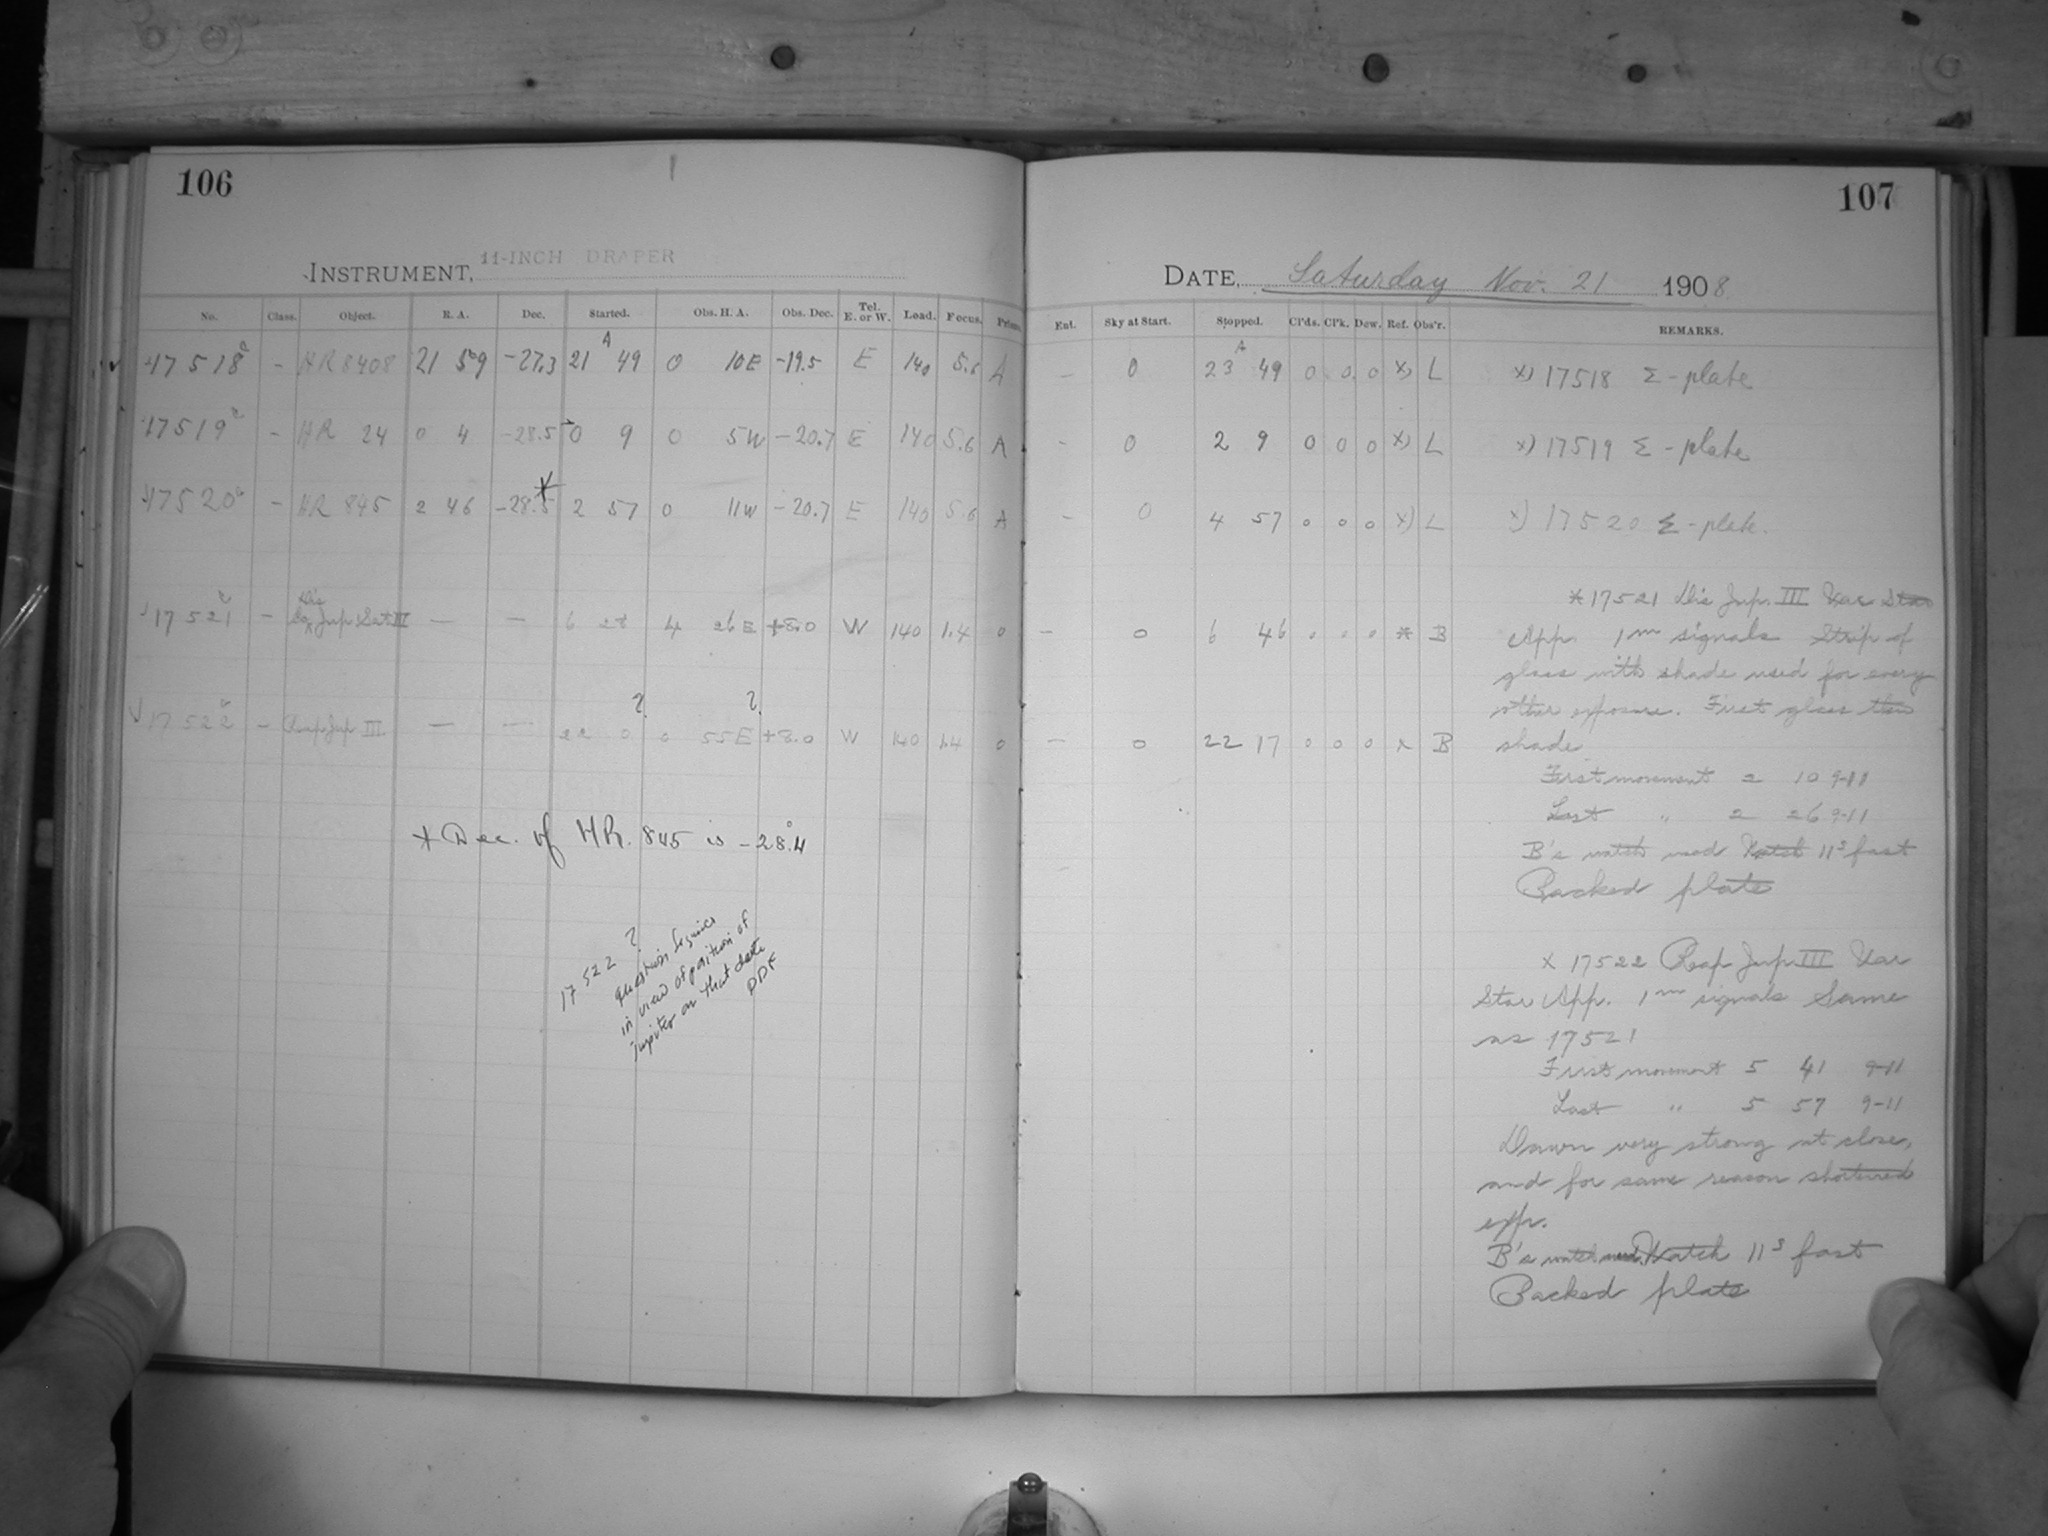 106
INSTRUMENT, 11-INCH DRAPER
No. Class. Object. R. A. Dec. Started. Obs. H. A. Obs. Dec. Tel. E. or W. Load. Focus.
17518 - HR 8408 21 59 -27.3 21 49 0 10E -19.5 E 140 5.6 A
17519 - HR 24 0 4 -28.5 0 9 0 5W -20.7 E 140 5.6 A
17520 - HR 845 2 46 -28.5 * 2 57 0 11W -20.7 E 140 5.6 A
17521 - Jup. Sat III — — 6 28 4 26 E +8.0 W 140 1.4 0
17522 - Reap Jup III. — — 22 0 ? 0 55E ? +8.0 W 140 1.4 0
* Dec. of HR. 845 is -28°.4
17522 ?
question
in view of position of
Jupiter on that date
DDF
107
DATE, Saturday Nov. 21 1908
Ent. Sky at Start. Stopped. Cl'ds. Cl'k. Dew. Ref. Obs'r. REMARKS.
- 0 23 49 0 0 0 x) L x) 17518 Σ - plate
- 0 2 9 0 0 0 x) L x) 17519 Σ - plate
- 0 4 57 0 0 0 x) L x) 17520 Σ - plate.
* 17521 Dis Jup. III Var Star
- 0 6 46 0 0 0 * B App. 1m signals Strip of
glass with shade used for every
other exposure. First glass then
- 0 22 17 0 0 0 x B shade
First movement 2 10 9-11
Last " 2 26 9-11
B's watch used Watch 11s fast
Backed plate
x 17522 Reap Jup III Var
Star App. 1m signals Same
as 17521
First movement 5 41 9-11
Last " 5 57 9-11
Dawn very strong at close,
and for same reason shortened
exp.
B's watch used. Watch 11s fast
Backed plate